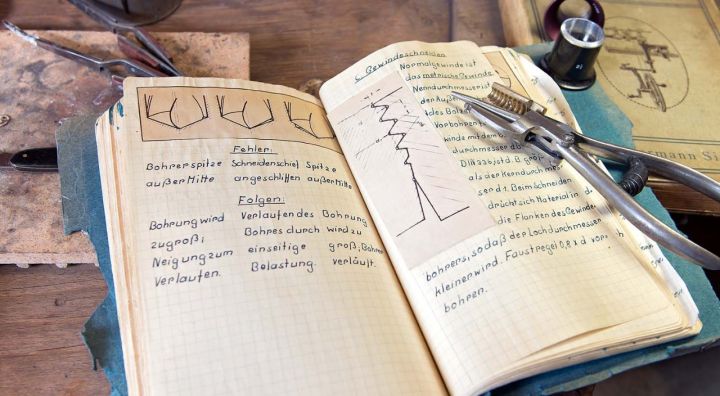 Fehler:
Bohrerspitze Schneidenschief Spitze
außer Mitte angeschliffen außer Mitte
Folgen:
Bohrung wird Verlaufen des Bohrung
zu groß; Bohres durch wird zu
Neigung zum einseitige groß, Bohrer
Verlaufen. Belastung. verläuft.
Gewindeschneiden
Normalgewinde ist
das metrische Gewinde
Nenndurchmesser ist
der Außen
des Bolz
Vorbohren
winde mit dem B
als der Kerndurchmes
ser d1. Beim Schneiden
drückt sich Material in
die Flanken des Gewinde
bohrers, so daß der Lochdurchmesser
kleiner wird. Faustregel 0,8 x d vor-
bohren.